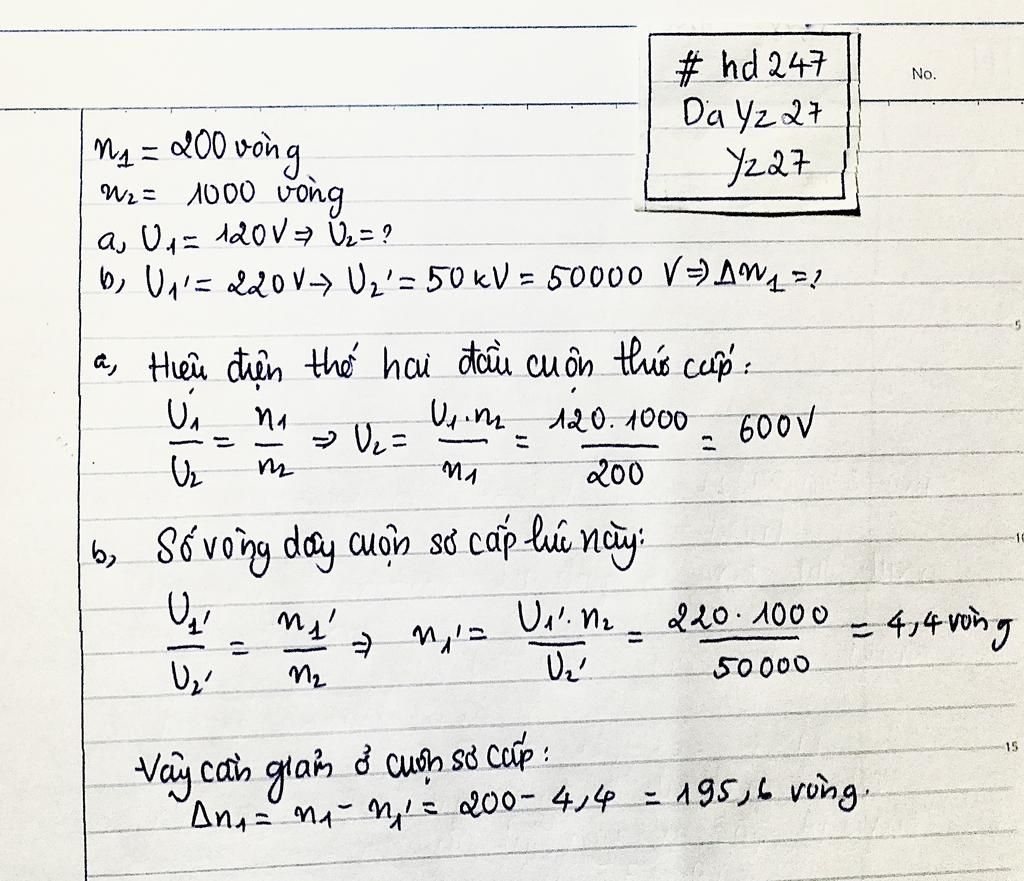 # hd247
Da Yz27
Yz27
No.
n₁ = 200 vòng
n₂ = 1000 vòng
a, U₁ = 120V ⇒ U₂ = ?
b, U₁' = 220V → U₂' = 50 kV = 50000 V ⇒ Δn₁ = ?
5
a, Hiệu điện thế hai đầu cuộn thứ cấp:
U₁/U₂ = n₁/n₂ ⇒ U₂ = U₁.n₂/n₁ = 120.1000/200 = 600V
b, Số vòng dây cuộn sơ cấp lúc này:
10
U₁'/U₂' = n₁'/n₂ ⇒ n₁' = U₁'.n₂/U₂' = 220.1000/50000 = 4,4 vòng
15
Vậy cần giảm ở cuộn sơ cấp:
Δn₁ = n₁ - n₁' = 200 - 4,4 = 195,6 vòng.